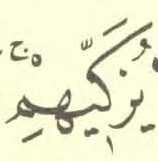 يُزَكِّيهِمْ ۚ